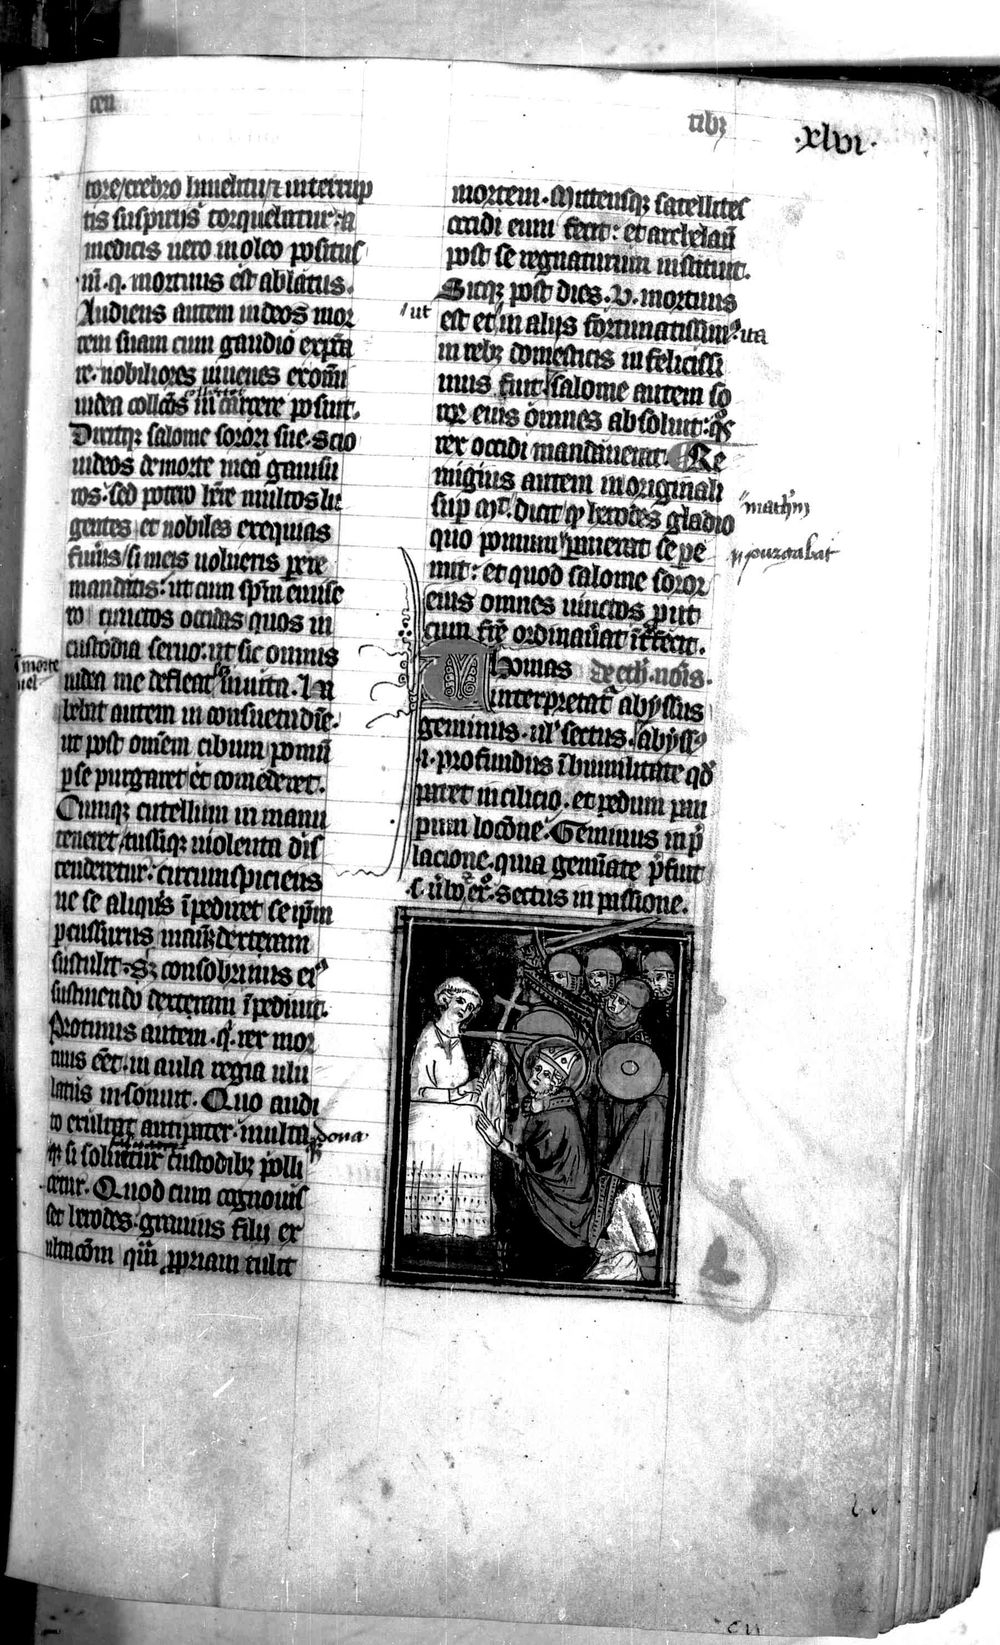 cen
tibꝫ
·xlvi·
tore / crebro hanelitu ⁊ interrup
tis suspiriis torquebatur : a
medicis uero in oleo positus
·ṁ·q· mortuus est ablatus.
Audiens autem iudeos mor
tem suam cum gaudio expc̄ta
re. nobiliores iuuenes ex om̄i
iudea collc̄os in carcere posuit.
Dixitqꝫ salome sorori sue. Scio
iudeos de morte mea gauisu
ros. sed potero h̄re multos lu
gentes et nobiles exequias
si meis uolueris pare
mandatis. ut cum sp̄m emise
ro cunctos occidas quos in
custodia seruo. ut sic omnis
morte
uel
iudea me defleat inuita. Ha
bebat autem in consuetudīe.
ut post om̄em cibum pomū
p se purgaret et comederet.
Cumqꝫ cutellum in manu
teneret / tussiqꝫ uiolenta dis
tenderetur. circumspiciens
ne se aliquis īpediret se ip̄m
pcussurus manū dexteram
sustulit. Sꝫ consobrinus eiꝰ
sustinendo dexteram īpediuit.
Protinus autem. q̇. rex mor
tuus eēt. in aula regia ulu
latus insonuit. Quo audi
to exultat antipater. multa
dona
qꝫ si soluatur custodibꝫ polli
cetur. Quod cum cognouis
set herodes. grauius filii ex
ultac̄om q̄m ꝓpriam tulit
mortem. Mittensqꝫ satellites
occidi eum fecit : et archelaū
post se regnaturum instituit.
Sicqꝫ post dies .v. mortuus
ut
est et in aliis fortunatissimꝰ. ita
in rebꝫ domesticis infelicissi
mus fuit. Salome autem so
ror eius omnes absoluit : q̄s
rex occidi mandauerat. Re
migius autem in originali
sup mt̄. dicit q̇ herodes gladio
math̄m
quo pomum purgabat se pe
purgabat
mit : et quod salome soror
eius omnes uinctos put
cum fr̄e ordinau̇at īt̄fecit.
Thomas de eth̄. nōīs.
interpretat̄ abyssus
geminus. ul' sectus. abyssꝰ
.i. profundus ī humilitate qd̄
patet in cilicio. et pedum pau
perum loc̄one. Geminus in p̄
lacione. quia gemīate p̄fuit
s. u̇bo et exº. Sectus in passione.